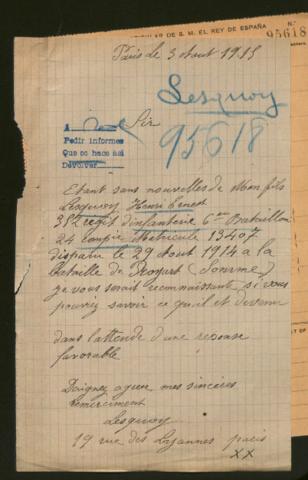 PARTICULAR DE S. M. EL REY DE ESPAÑA
N.º
95618
Paris Le 3 Aout 1915
Lesquoy
Sir
95618
A
Pedir informes
Que se hace asi
Devolver
Etant sans nouvelles de Mon fils
Lesquoy Henri Ernest
382 regit d'infanterie 6me Bataillon
24 conpie Matricule 13407
disparu le 29 Aout 1914 a la
bataille de Proyart (Somme)
je vous serait reconnaissant si vous
pouviez savoir ce qu'il et devenu
dans l'attende d'une reponse
favorable
Daignez agreer mes sincères
remerciment
Lesquoy
19 rue des Lyannes paris
XX